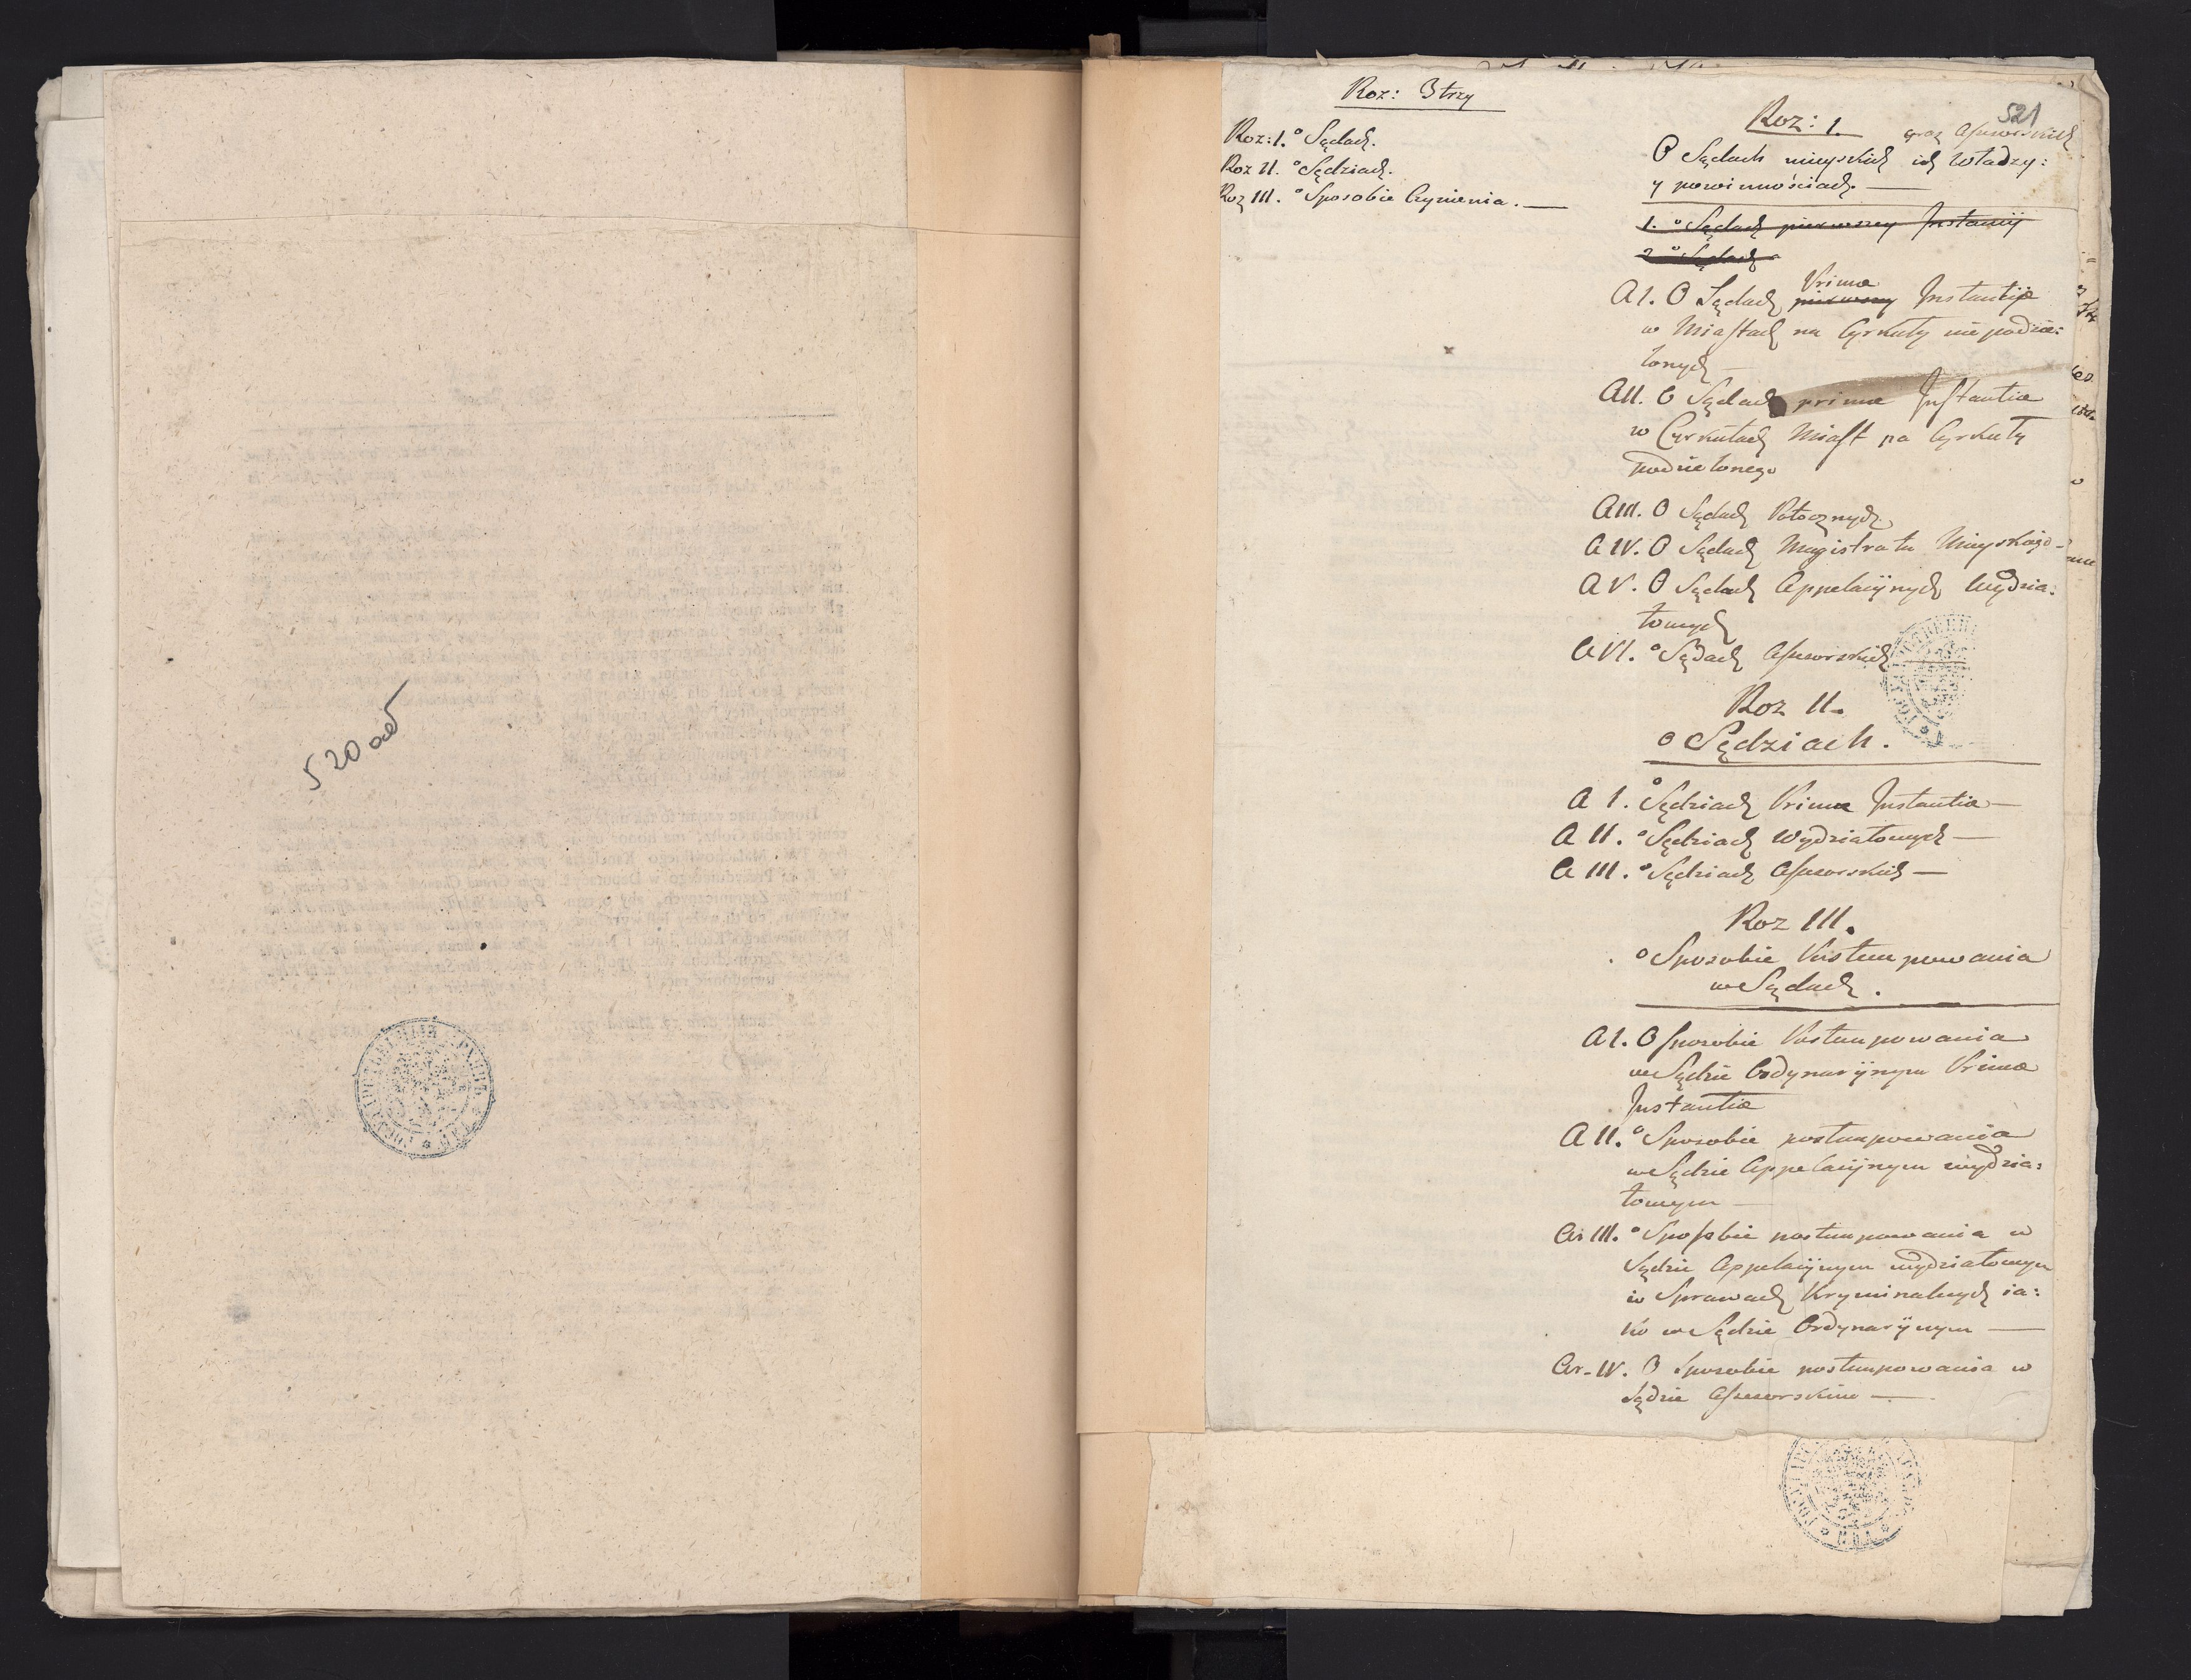 520
Roz: 3 trzy
Roz: I. o Sądach.
Roz II. o Sędziach.
Roz III. o Sposobie Czynienia. —
521
Roz: 1.
oraz Assessorskich
O Sądach mieyskich ich władzy:
y powinnościach. —
1. o Sądach pierwszey Instancij
2 o Sądach
A I. O Sądach pierwszey Primæ Instantiæ
w Miastach na Cyrkuły nie podzie:
lonych —
A II. O Sądach primæ Instantiæ
w Cyrkułach Miast na Cyrkuły
podzielonego
A III. O Sądach Potocznych
A IV. O Sądach Magistratu Mieyskiego —
A V. O Sądach Appelacijnych Wydzia:
łowych
A VI. o Sądach Assessorskich
Roz II.
o Sędziach.
A I. o Sędziach Primæ Instantiæ —
A II. o Sędziach Wydziałowych —
A III. o Sędziach Assessorskich —
Roz III.
o Sposobie Postempowania
w Sądach.
A I. O sposobie Postempowania
w Sądzie Ordynaryinym Primæ
Instantiæ
A II. o Sposobie postempowania
w Sądzie Appelacijnym wydzia:
łowym —
Ar III. o Sposobie postempowania w
Sądzie Appelacijnym wydziałowym
w Sprawach Kryminalnych ia:
ko w Sądzie Ordynaryinym —
Ar. IV. O Sposobie postempowania w
Sądzie Assessorskim —